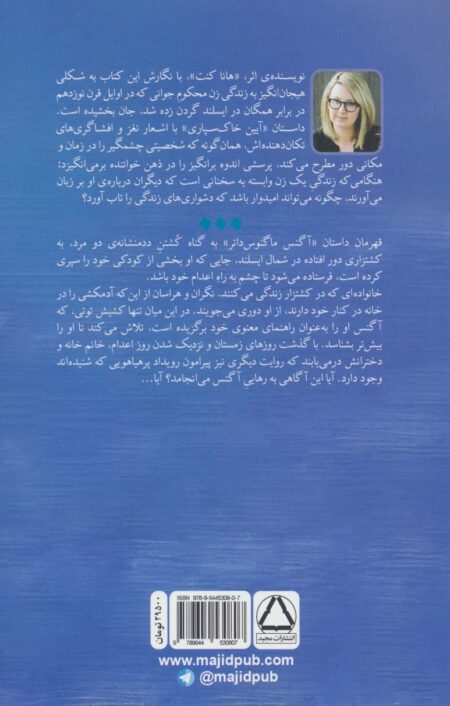 نویسنده‌ی اثر، «هانا کنت»، با نگارش این کتاب به شکلی
هیجان‌انگیز به زندگی زن محکوم جوانی که در اوایل قرن نوزدهم
در برابر همگان در ایسلند گردن زده شد، جان بخشیده است.
داستان «آیین خاک‌سپاری» با اشعار نغز و افشاگری‌های
تکان‌دهنده‌اش، همان‌گونه که شخصیتی چشمگیر را در زمان و
مکانی دور مطرح می‌کند، پرسشی اندوه برانگیز را در ذهن خواننده برمی‌انگیزد:
هنگامی‌که زندگی یک زن وابسته به سخنانی است که دیگران درباره‌ی او بر زبان
می‌آورند، چگونه می‌تواند امیدوار باشد که دشواری‌های زندگی را تاب آورد؟
قهرمان داستان «آگنس ماگنوس‌داتر» به گناه کُشتن ددمنشانه‌ی دو مرد، به
کشتزاری دور افتاده در شمال ایسلند، جایی که او بخشی از کودکی خود را سپری
کرده است، فرستاده می‌شود تا چشم به راهِ اعدام خود باشد.
خانواده‌ای که در کشتزار زندگی می‌کنند، نگران و هراسان از این‌که آدمکشی را در
خانه در کنار خود دارند، از او دوری می‌جویند. در این میان تنها کشیش توتی، که
آگنس او را به‌عنوان راهنمای معنوی خود برگزیده است، تلاش می‌کند تا او را
بیش‌تر بشناسد. با گذشت روزهای زمستان و نزدیک شدن روز اعدام، خانم خانه و
دخترانش درمی‌یابند که روایت دیگری نیز پیرامون رویداد پرهیاهویی که شنیده‌اند
وجود دارد. آیا این آگاهی به رهاییِ آگنس می‌انجامد؟ آیا...
۲۹۵۰۰ تومان
ISBN 978-9-6445306-0-7
9 789644 530607
انتشارات مجید
www.majidpub.com
@majidpub